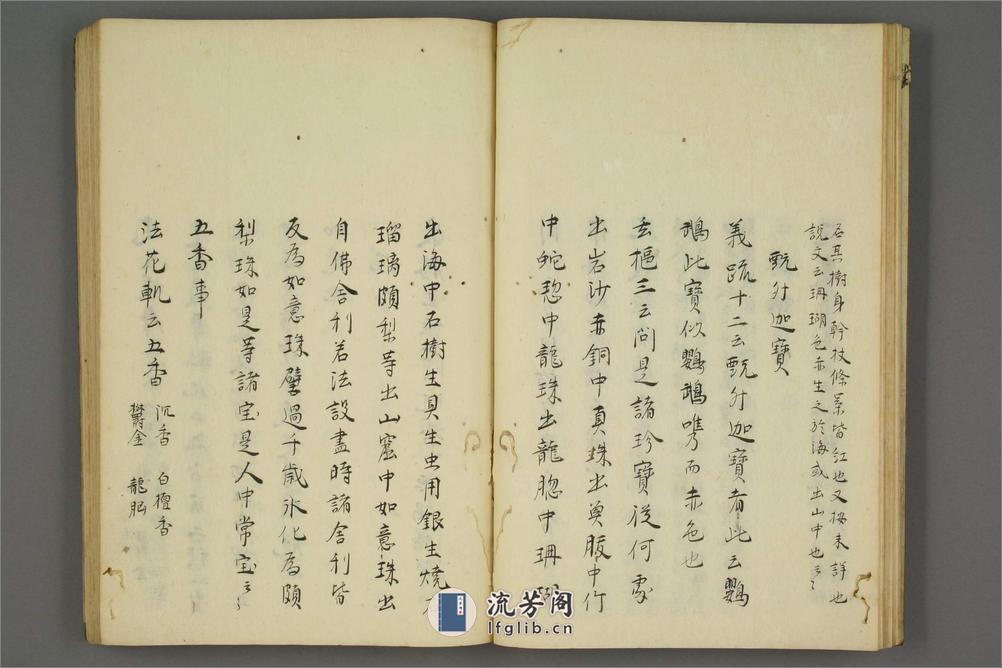 名其樹身幹枝條葉皆紅也又按未詳也
說文云珊瑚色赤生之於海或出山中也云々
甄舛迦寶
義疏十二云甄舛迦寶者此云鸚
鵡此寶似鸚鵡嘴而赤色也
玄樞三云問是諸珍寶從何處
出岩沙赤銅中真珠出魚腹中竹
中蛇𢚩中龍珠出龍𢚩中珊瑚
出海中石樹生貝生虫用銀生燒石
瑠璃頗梨等出山窟中如意珠出
自佛舍利若法設盡時諸舍利皆
反為如意珠譬過千歲氷化為頗
梨珠如是等諸宝是人中常宝云々
五香事
法花軌云五香 沉香 白檀香
欝金 龍脳
流芳阁
lfglib.cn